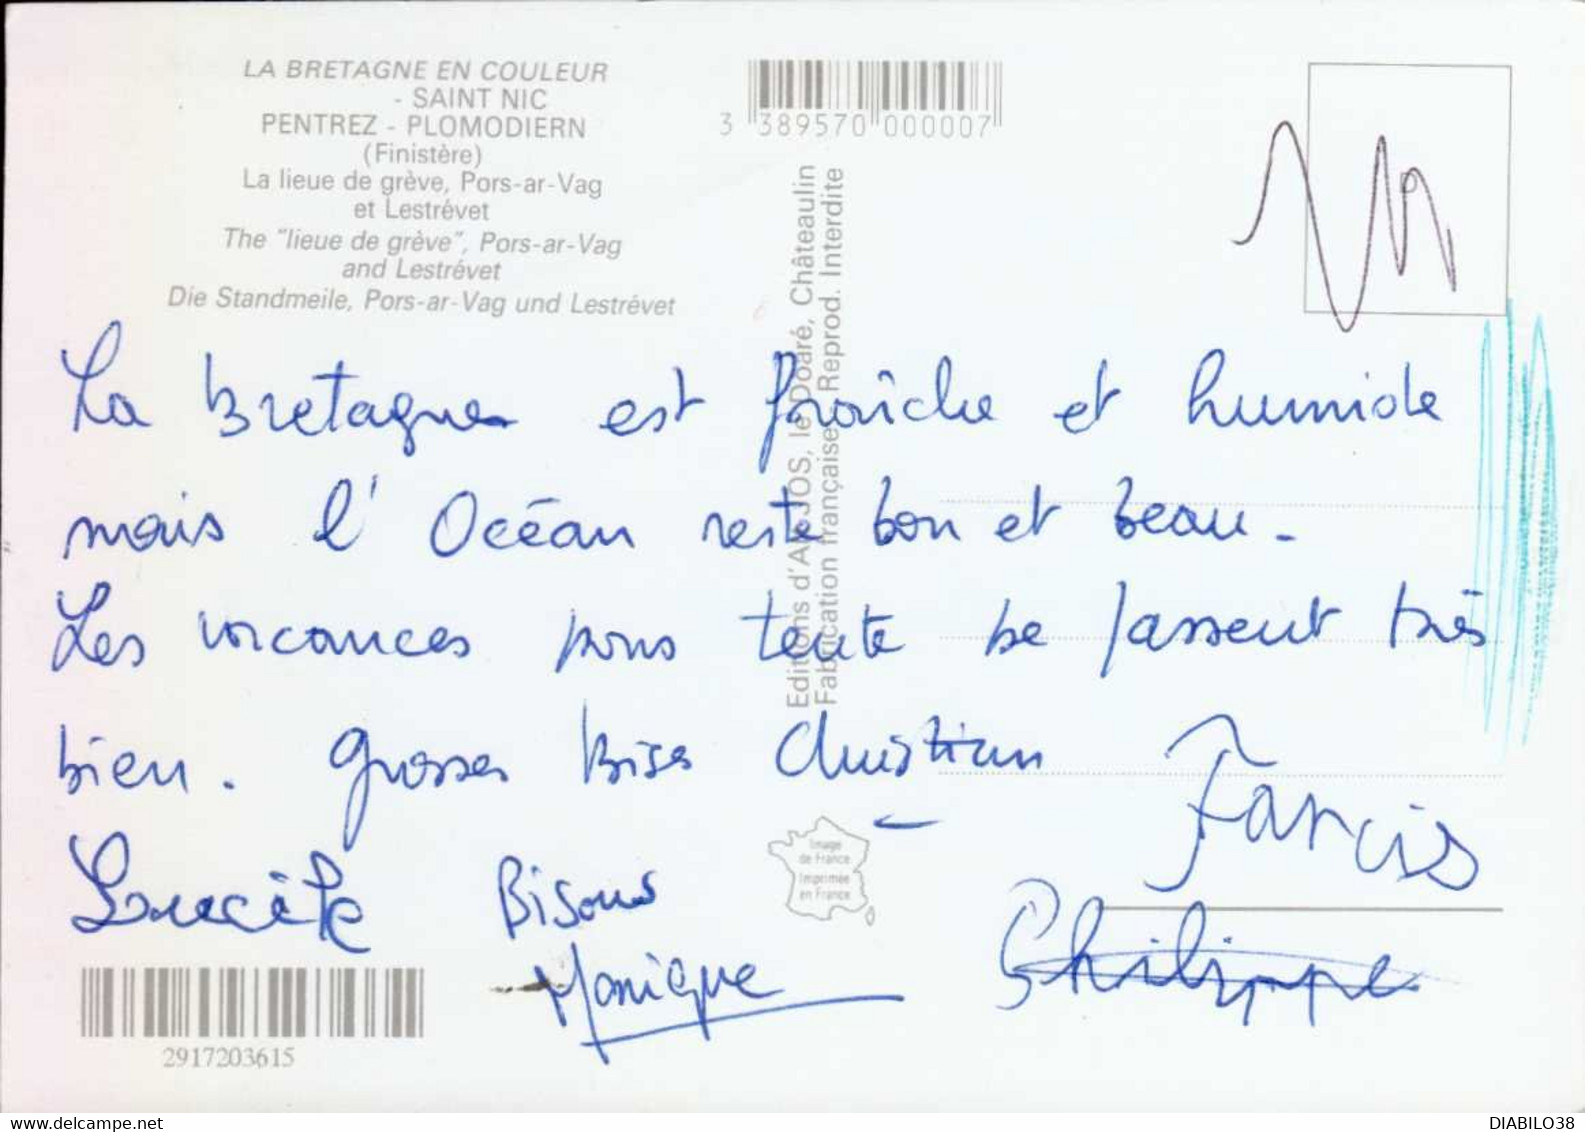 LA BRETAGNE EN COULEUR
- SAINT NIC
PENTREZ - PLOMODIERN
(Finistère)
La lieue de grève, Pors-ar-Vag
et Lestrévet
The "lieue de grève", Pors-ar-Vag
and Lestrévet
Die Standmeile, Pors-ar-Vag und Lestrévet
3 389570 000007
Editions d'Art JOS, le Doaré, Châteaulin
Fabrication française Reprod. Interdite
La Bretagne est fraîche et humide
mais l'Océan reste bon et beau.
Les vacances sous tente se passent très
bien. Grosses Bises Christian
Lucile Bisous
Monique
Philippe
Image
de France
Imprimée
en France
2917203615
delcampe.net
DIABILO38